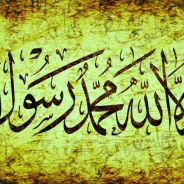 لَّا اللهُ مُحَمَّدٌ رَسُوْلُ